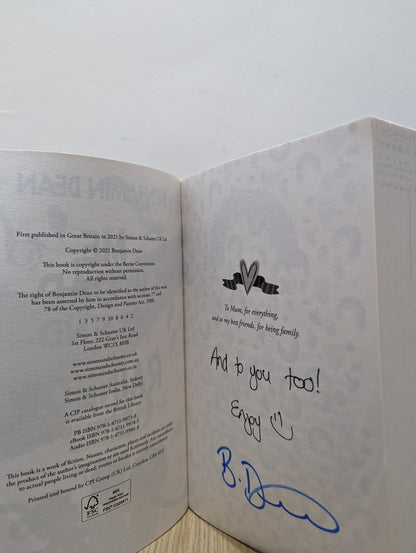 BENJAMIN DEAN
First published in Great Britain in 2021 by Simon & Schuster UK Ltd
Copyright © 2021 Benjamin Dean
This book is copyright under the Berne Convention.
No reproduction without permission.
All rights reserved.
The right of Benjamin Dean to be identified as the author of this work
has been asserted by him in accordance with sections 77 and
78 of the Copyright, Design and Patents Act, 1988.
1 3 5 7 9 10 8 6 4 2
Simon & Schuster UK Ltd
1st Floor, 222 Gray's Inn Road
London WC1X 8HB
www.simonandschuster.co.uk
www.simonandschuster.com.au
www.simonandschuster.co.in
Simon & Schuster Australia, Sydney
Simon & Schuster India, New Delhi
A CIP catalogue record for this book
is available from the British Library.
PB ISBN
eBook ISBN
Audio ISBN
This book is a work of fiction. Names, characters, places and incidents are either
the product of the author's imagination or are used fictitiously. Any resemblance
to actual people living or dead, events or locales is entirely coincidental.
Printed and bound by CPI Group (UK) Ltd, Croydon, CR0 4YY
FSC
MIX
To Mum, for everything,
and to my best friends, for being family.
And to you too!
Enjoy
B. D